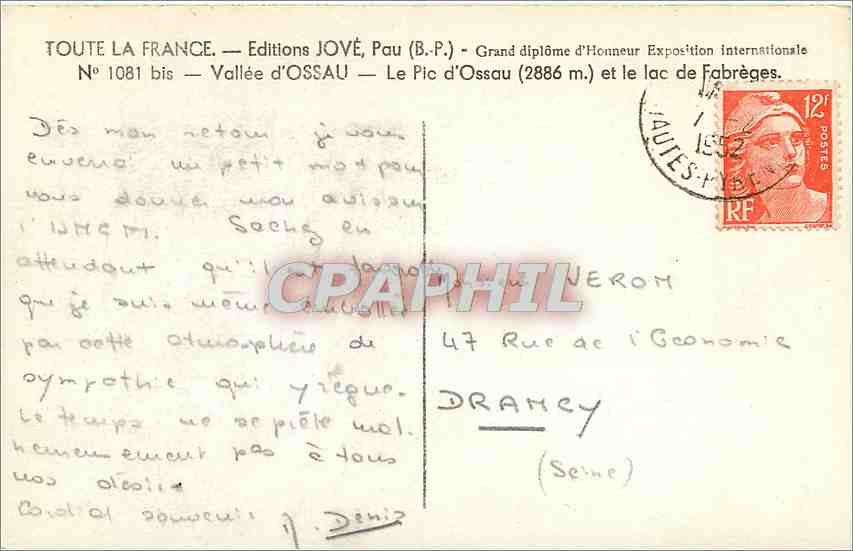 TOUTE LA FRANCE. — Editions JOVÉ, Pau (B.-P.) - Grand diplôme d'Honneur Exposition internationale
Nº 1081 bis — Vallée d'OSSAU — Le Pic d'Ossau (2886 m.) et le lac de Fabrèges.
12F
POSTES
RF
1952
HAUTES-PYRÉN
Dès mon retour je vous
enverrai un petit mot pour
vous donner mon avis sur
l'. Sachez en
attendant qu'il est
que je suis même emballé
par cette atmosphère de
sympathie qui y règne.
Le temps ne se prête mal-
heureusement pas à tous
nos désirs
Cordial souvenir
Denis
CPAPHIL
Monsieur VERON
47 Rue de l'Economie
DRANCY
(Seine)